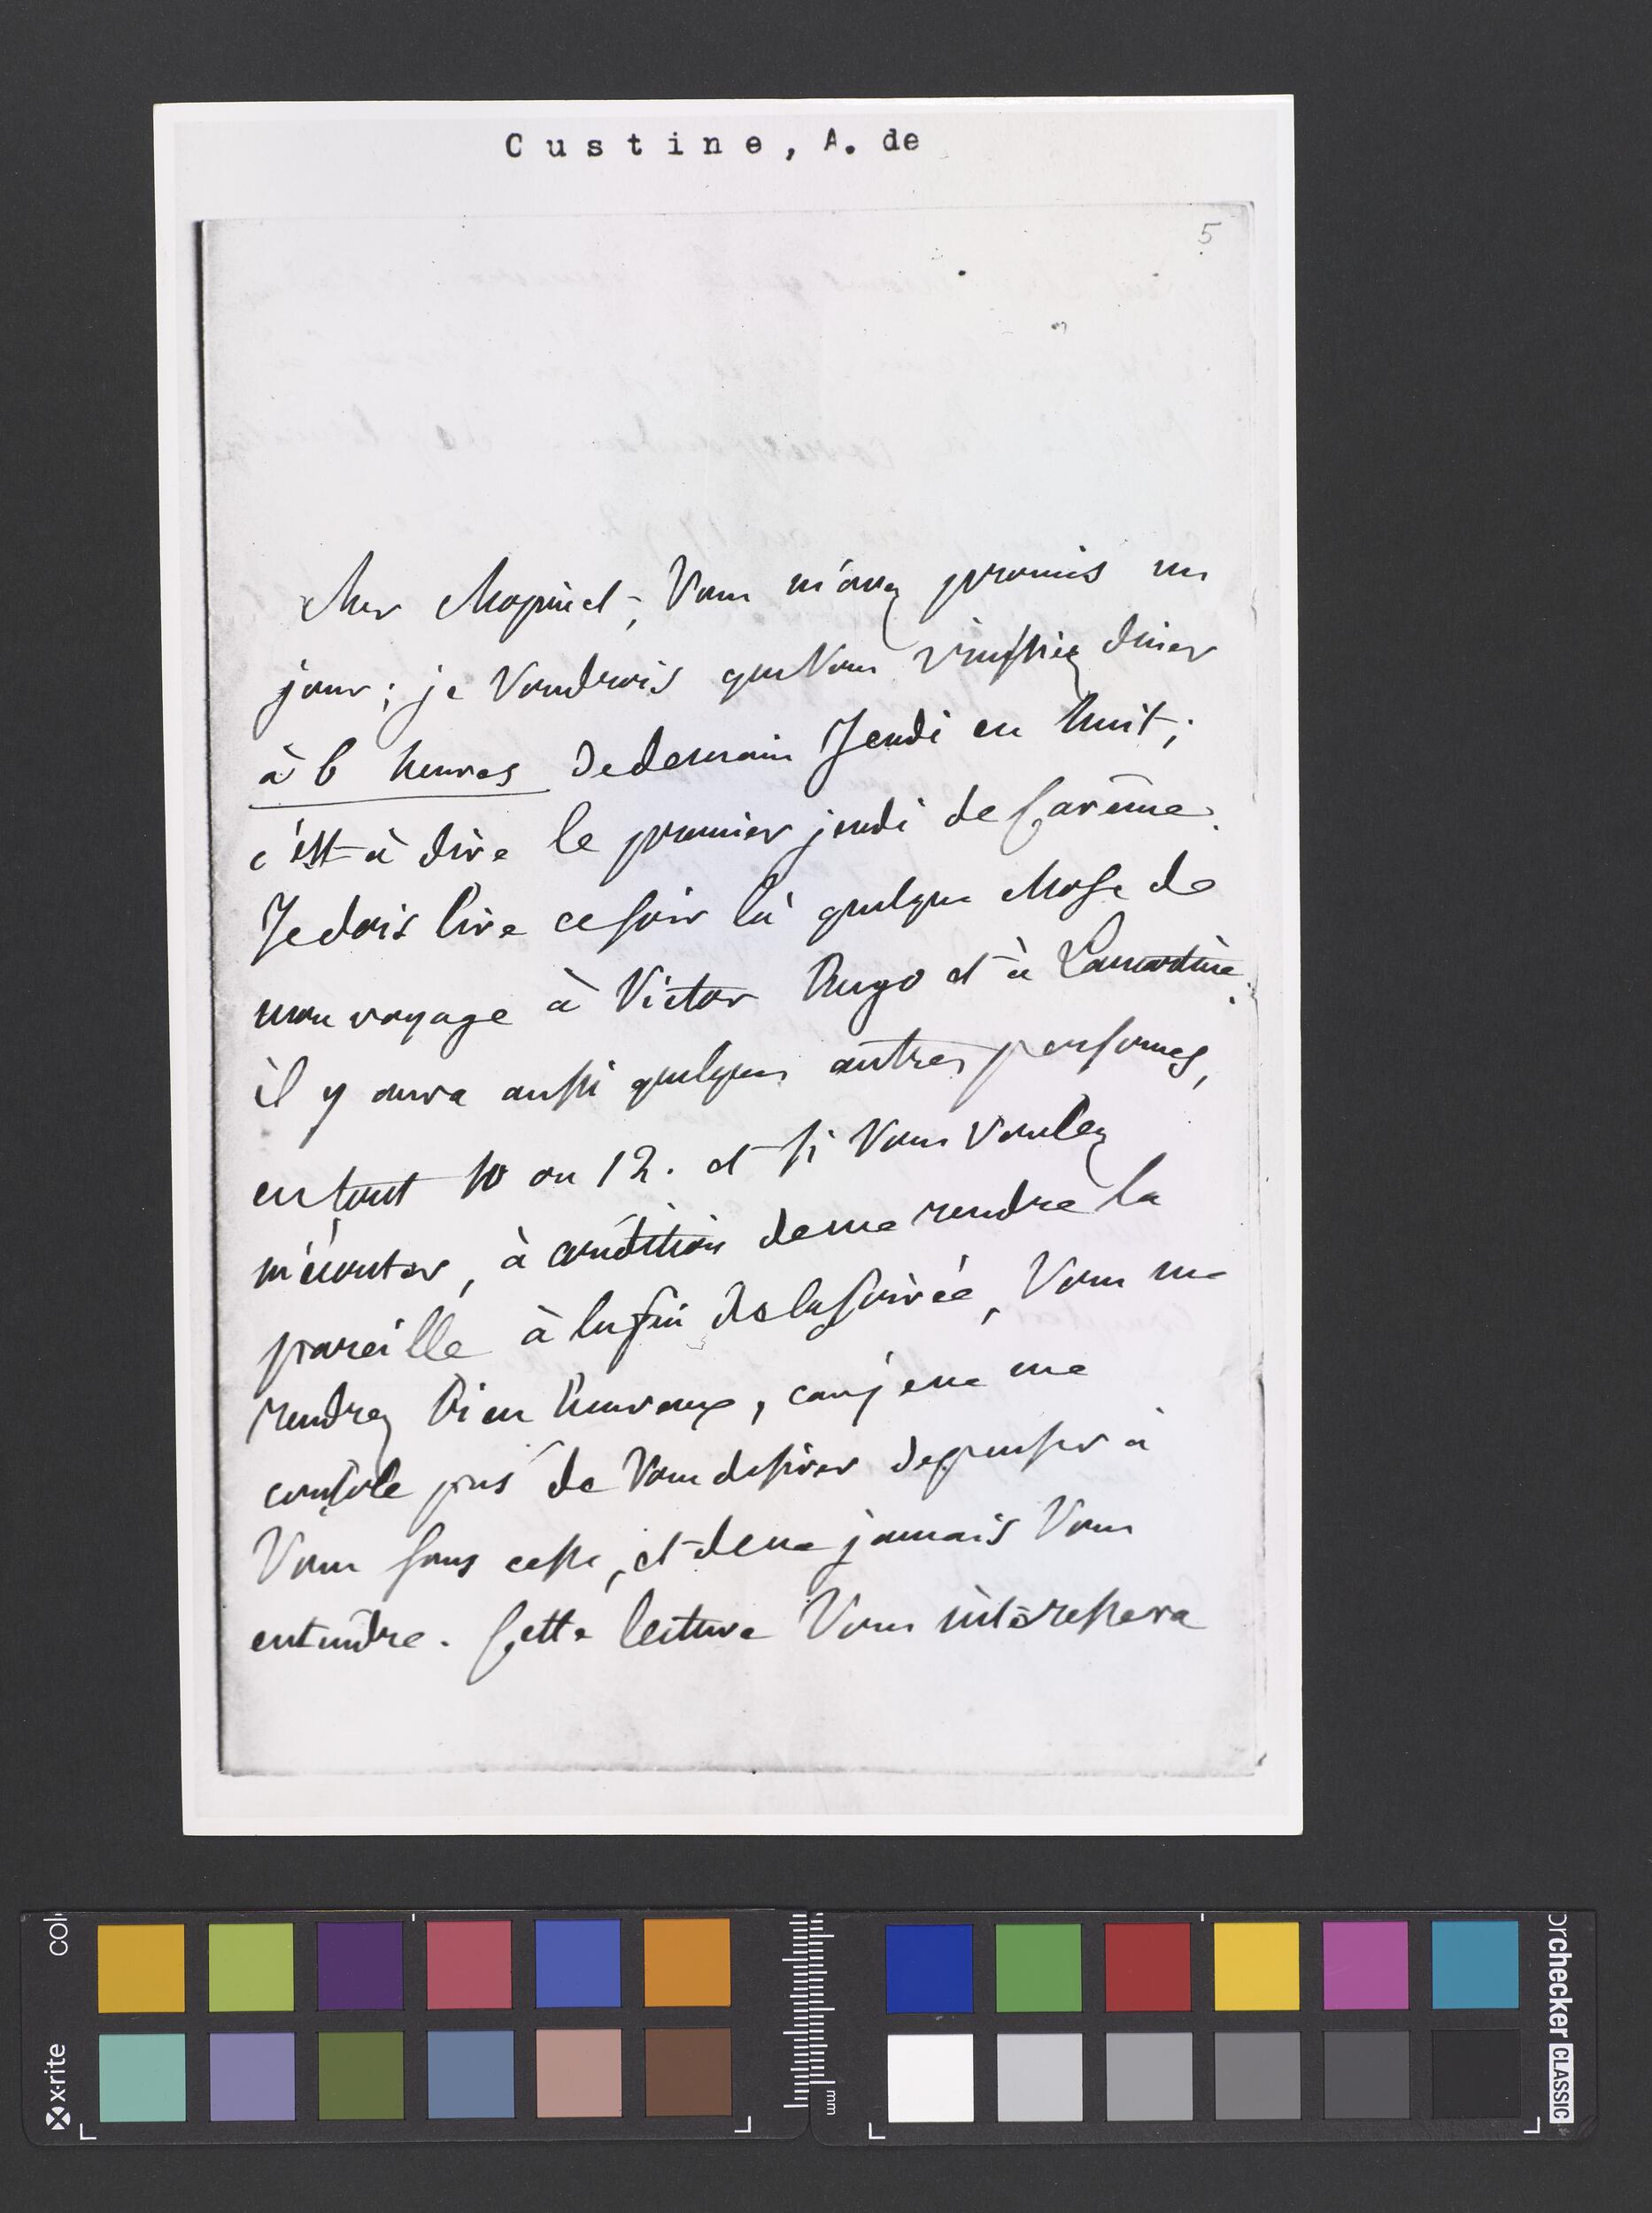 Custine, A. de
5
cher chopinet, Vous m'avez promis un
jour; je Voudrois que Vous vinssiez diner
à 6 heures de demain Jeudi en huit;
c'est à dire le premier jeudi de Carême.
Je dois lire ce soir là quelque chose de
mon voyage à Victor Hugo et à Lamartine.
il y aura aussi quelques autres personnes,
en tout 10 ou 12. et si Vous voulez
m'écouter, à condition de me rendre la
pareille à la fin de la soirée, Vous me
rendrez bien heureux, car je ne me
console pas de Vous desirer de penser à
Vous sans cesse, et de ne jamais Vous
entendre. Cette lecture Vous intéressera
x·rite
col
mm
orchecker CLASSIC